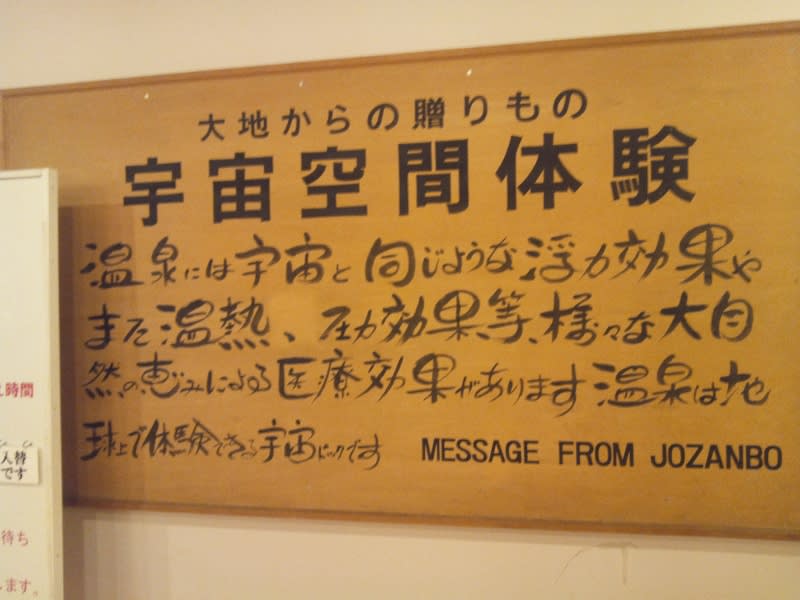 大地からの贈りもの
宇宙空間体験
温泉には宇宙と同じような浮力効果や
また温熱、圧力効果、等、様々な大自
然の恵みによる医療効果があります温泉は地
球上で体験できる宇宙ドックです
MESSAGE FROM JOZANBO
時間
入替
です
待ち
します。